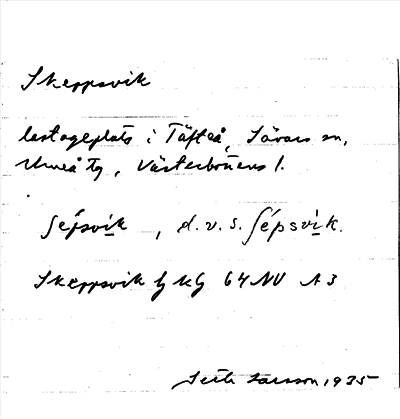 Skeppsvik
lastageplats i Täfteå, Sävars sn,
Umeå tg, Västerbottens l.
ʃépsvik, d.v.s. ʃépsvik.
Skeppsvik 64 NV A3
Larsson, 1935